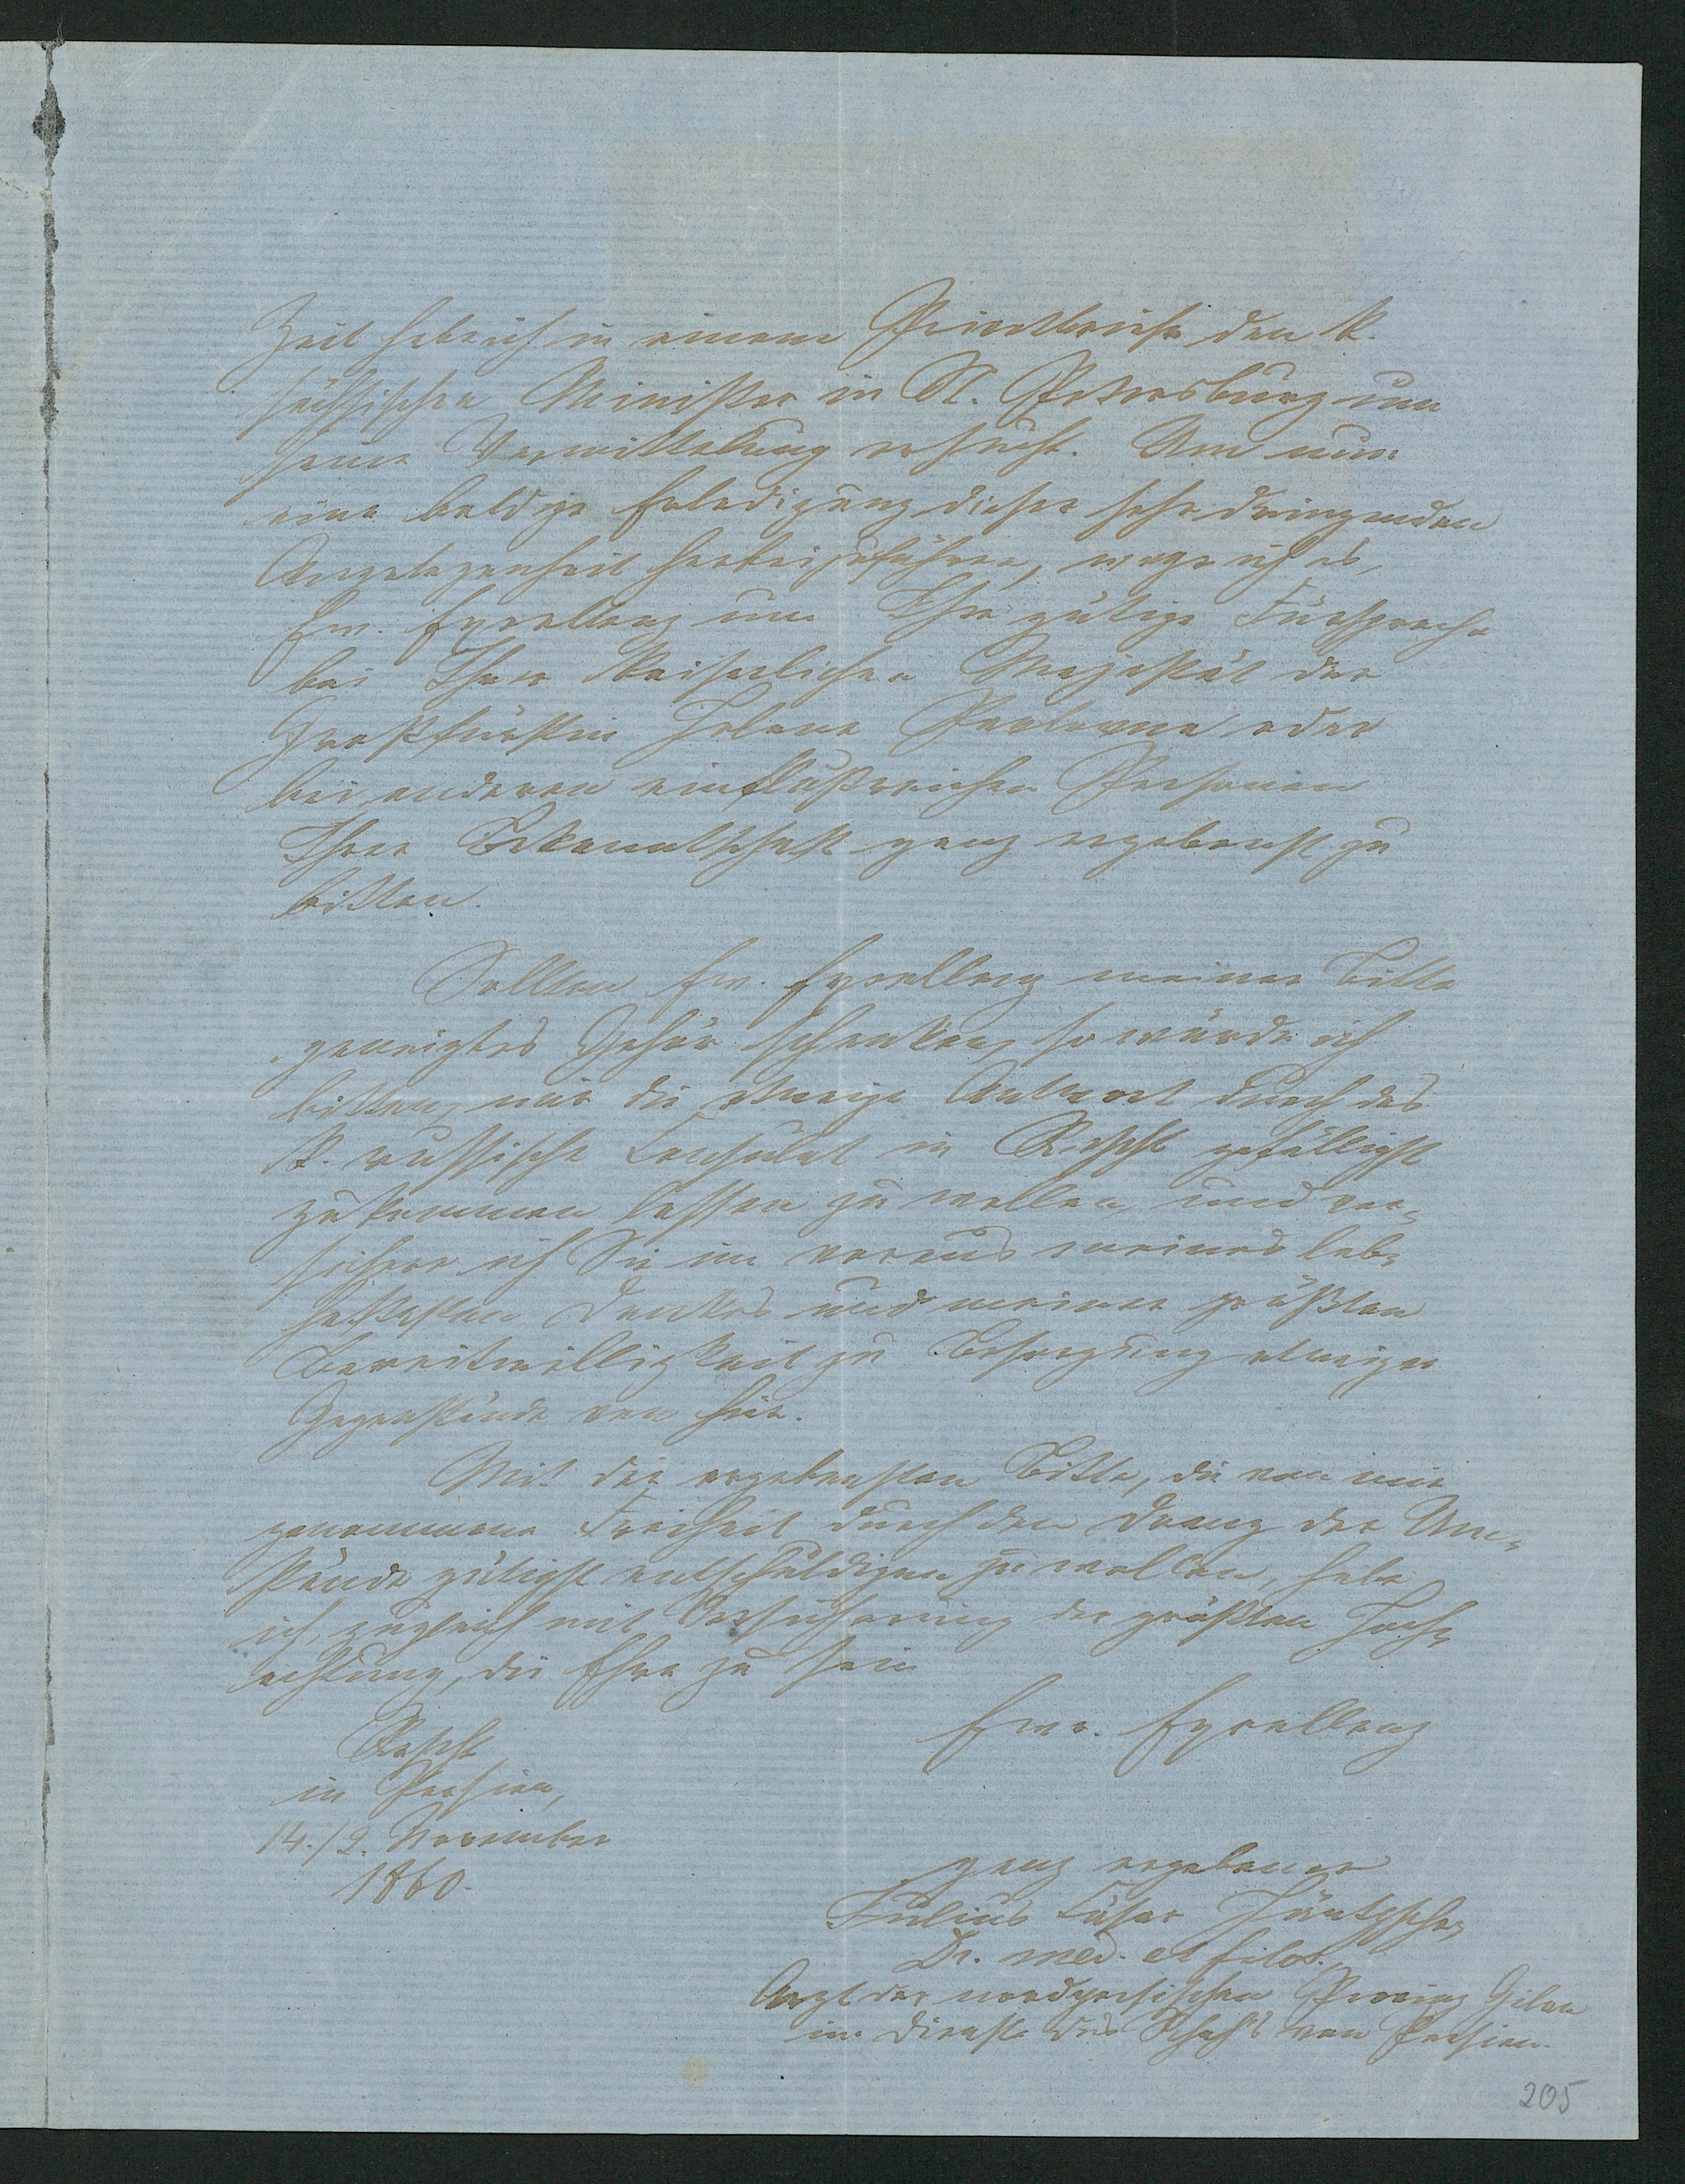 Zeit habe ich in einem Privatbriefe den K.
sächsischen Minister in St. Petersburg um
seine Vermittelung ersucht. Um nun
eine baldige Erledigung dieser sehr dringenden
Angelegenheit herbeizuführen, wage ich es,
Ew. Excellenz um Ihre gütige Fürsprache
bei Ihrer Kaiserlichen Majestät der
Großfürstin Helene Paulowna oder
bei anderen einflußreichen Personen
Ihrer Bekanntschaft ganz ergebenst zu
bitten.
Sollten Ew. Excellenz meiner Bitte
geneigtes Gehör schenken, so würde ich
bitten, mir die etwaige Antwort durch das
K. russische Consulat in Rescht gefälligst
zukommen lassen zu wollen, und ver-
sichere ich Sie im voraus meines leb-
haftesten Dankes und meiner größten
Bereitwilligkeit zu Besorgung etwaiger
Gegenstände von hier.
Mit der ergebensten Bitte, die von mir
genommene Freiheit durch den Drang der Um-
stände gütigst entschuldigen zu wollen, habe
ich, zugleich mit Versicherung der größten Hoch-
achtung, die Ehre zu sein
Ew. Excellenz
Rescht
in Persien,
14./2. November
1860.
ganz ergebener
Julius Cäsar Häntzsche,
Dr. med. et filos.,
Arzt der nordpersischen Provinz Gilan
im Dienste des Schah's von Persien.
205